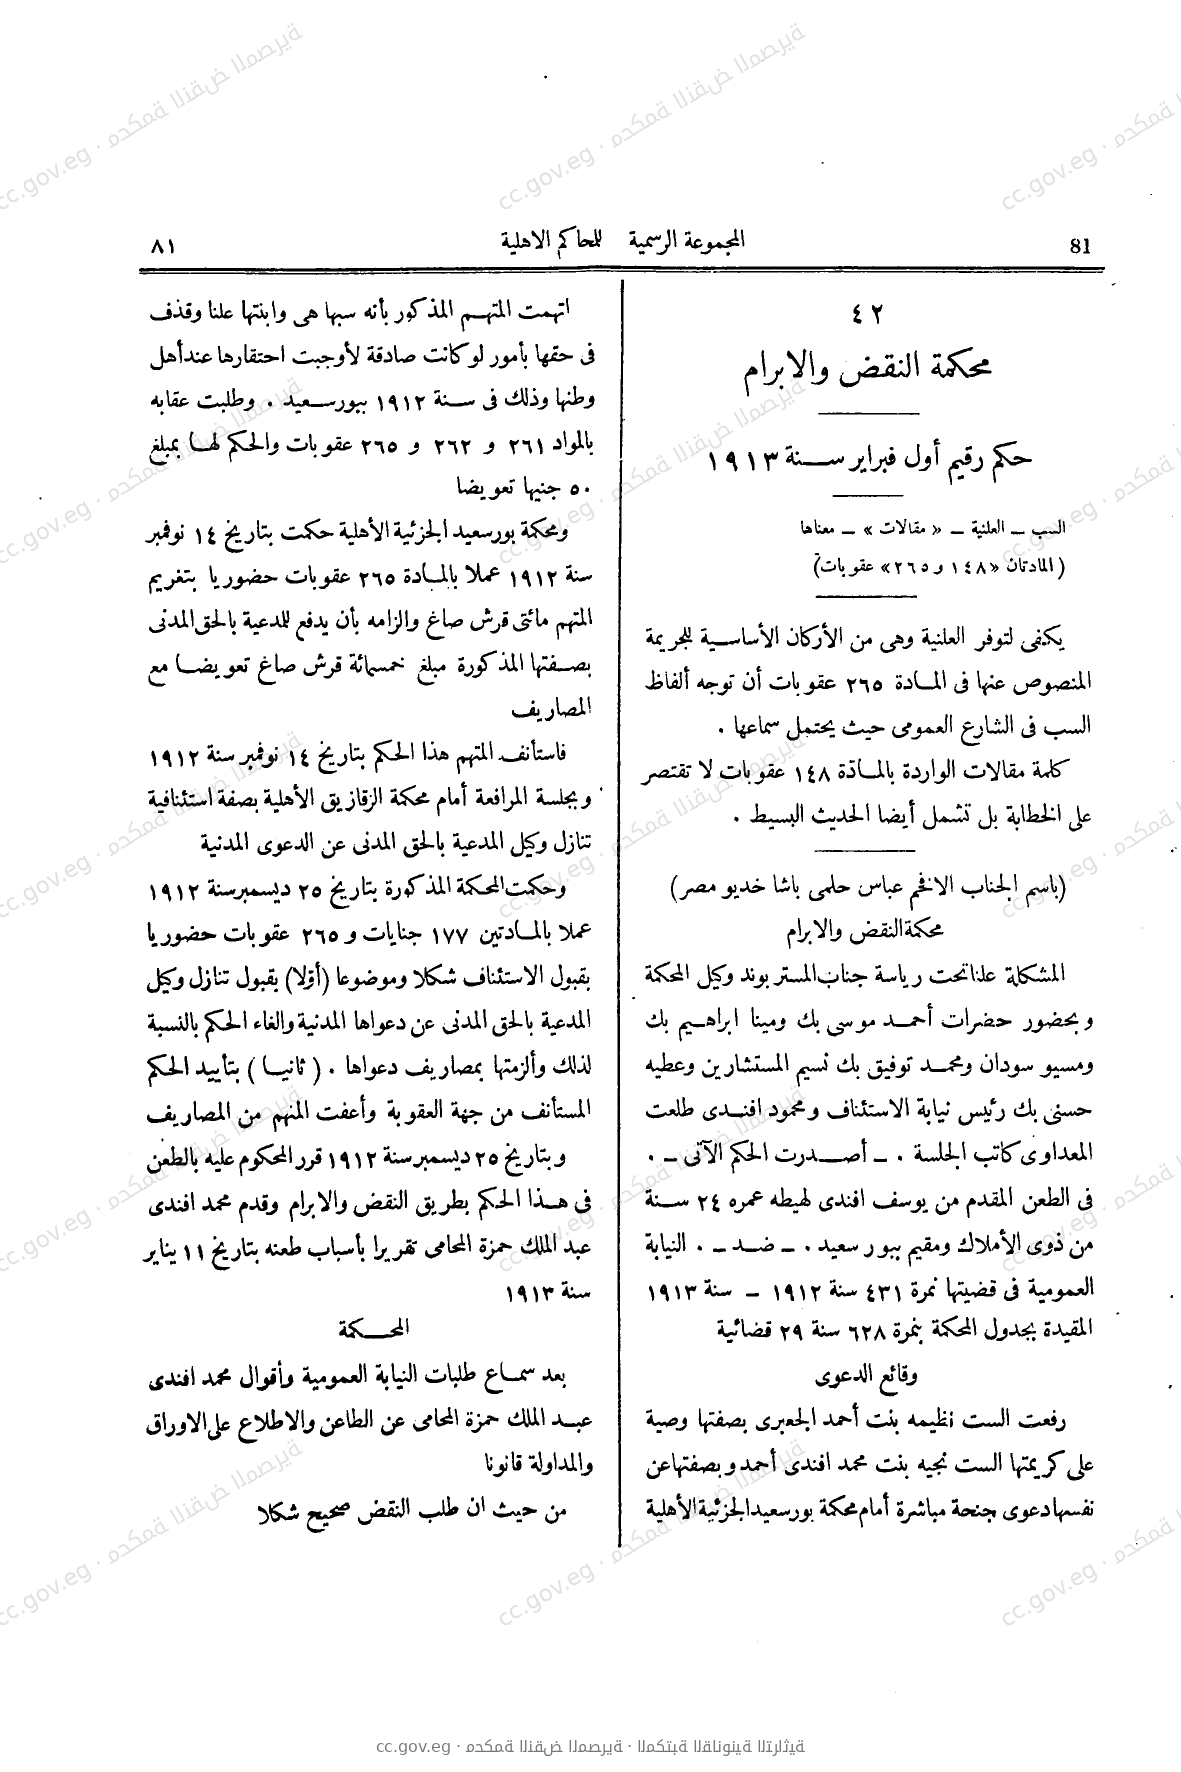 81
المجموعة الرسمية للمحاكم الاهلية
٨١
٤٢
محكمة النقض والابرام
حكم رقيم أول فبراير سنة ١٩١٣
السب – العلنية – « مقالات » – معناها
( المادتان «١٤٨ و ٢٦٥» عقوبات)
يكفى لتوفر العلنية وهى من الأركان الأساسية للجريمة
المنصوص عنها فى المادة ٢٦٥ عقوبات أن توجه ألفاظ
السب فى الشارع العمومى حيث يحتمل سماعها .
كلمة مقالات الواردة بالمادّة ١٤٨ عقوبات لا تقتصر
على الخطابة بل تشمل أيضا الحديث البسيط .
(باسم الجناب الافخم عباس حلمى باشا خديو مصر)
محكمة النقض والابرام
المشكلة علنا تحت رياسة جناب المستر بوند وكيل المحكمة
وبحضور حضرات أحمد موسى بك ومينا ابراهيم بك
ومسيو سودان ومحمد توفيق بك نسيم المستشارين وعطيه
حسنى بك رئيس نيابة الاستئناف ومحمود افندى طلعت
المعداوى كاتب الجلسة . – أصدرت الحكم الآتى – .
فى الطعن المقدم من يوسف افندى لهيطه عمره ٢٤ سنة
من ذوى الأملاك ومقيم ببور سعيد . – ضد – . النيابة
العمومية فى قضيتها نمرة ٤٣١ سنة ١٩١٢ – سنة ١٩١٣
المقيدة بجدول المحكمة بنمرة ٦٢٨ سنة ٢٩ قضائية
وقائع الدعوى
رفعت الست نظيمه بنت أحمد الجعبرى بصفتها وصية
على كريمتها الست نجيه بنت محمد افندى أحمد وبصفتها عن
نفسها دعوى جنحة مباشرة أمام محكمة بورسعيد الجزئية الأهلية
اتهمت المتهم المذكور بأنه سبها هى وابنتها علنا وقذف
فى حقها بأمور لو كانت صادقة لأوجبت احتقارها عند أهل
وطنها وذلك فى سنة ١٩١٢ ببورسعيد . وطلبت عقابه
بالمواد ٢٦١ و ٢٦٢ و ٢٦٥ عقوبات والحكم لها بمبلغ
٥٠ جنيها تعويضا
ومحكمة بورسعيد الجزئية الأهلية حكمت بتاريخ ١٤ نوفمبر
سنة ١٩١٢ عملا بالمادة ٢٦٥ عقوبات حضوريا بتغريم
المتهم مائتى قرش صاغ والزامه بأن يدفع للمدعية بالحق المدنى
بصفتها المذكورة مبلغ خمسمائة قرش صاغ تعويضا مع
المصاريف
فاستأنف المتهم هذا الحكم بتاريخ ١٤ نوفمبر سنة ١٩١٢
وبجلسة المرافعة أمام محكمة الزقازيق الأهلية بصفة استئنافية
تنازل وكيل المدعية بالحق المدنى عن الدعوى المدنية
وحكمت المحكمة المذكورة بتاريخ ٢٥ ديسمبر سنة ١٩١٢
عملا بالمادتين ١٧٧ جنايات و ٢٦٥ عقوبات حضوريا
بقبول الاستئناف شكلا وموضوعا (أوّلا) بقبول تنازل وكيل
المدعية بالحق المدنى عن دعواها المدنية والغاء الحكم بالنسبة
لذلك وألزمتها بمصاريف دعواها . ( ثانيا ) بتأييد الحكم
المستأنف من جهة العقوبة وأعفت المتهم من المصاريف
وبتاريخ ٢٥ ديسمبر سنة ١٩١٢ قرر المحكوم عليه بالطعن
فى هذا الحكم بطريق النقض والابرام وقدم محمد افندى
عبد الملك حمزة المحامى تقريرا بأسباب طعنه بتاريخ ١١ يناير
سنة ١٩١٣
المحكمة
بعد سماع طلبات النيابة العمومية وأقوال محمد افندى
عبد الملك حمزة المحامى عن الطاعن والاطلاع على الاوراق
والمداولة قانونا
من حيث ان طلب النقض صحيح شكلا
cc.gov.eg · محكمة النقض المصرية · المكتبة القانونية التراثية